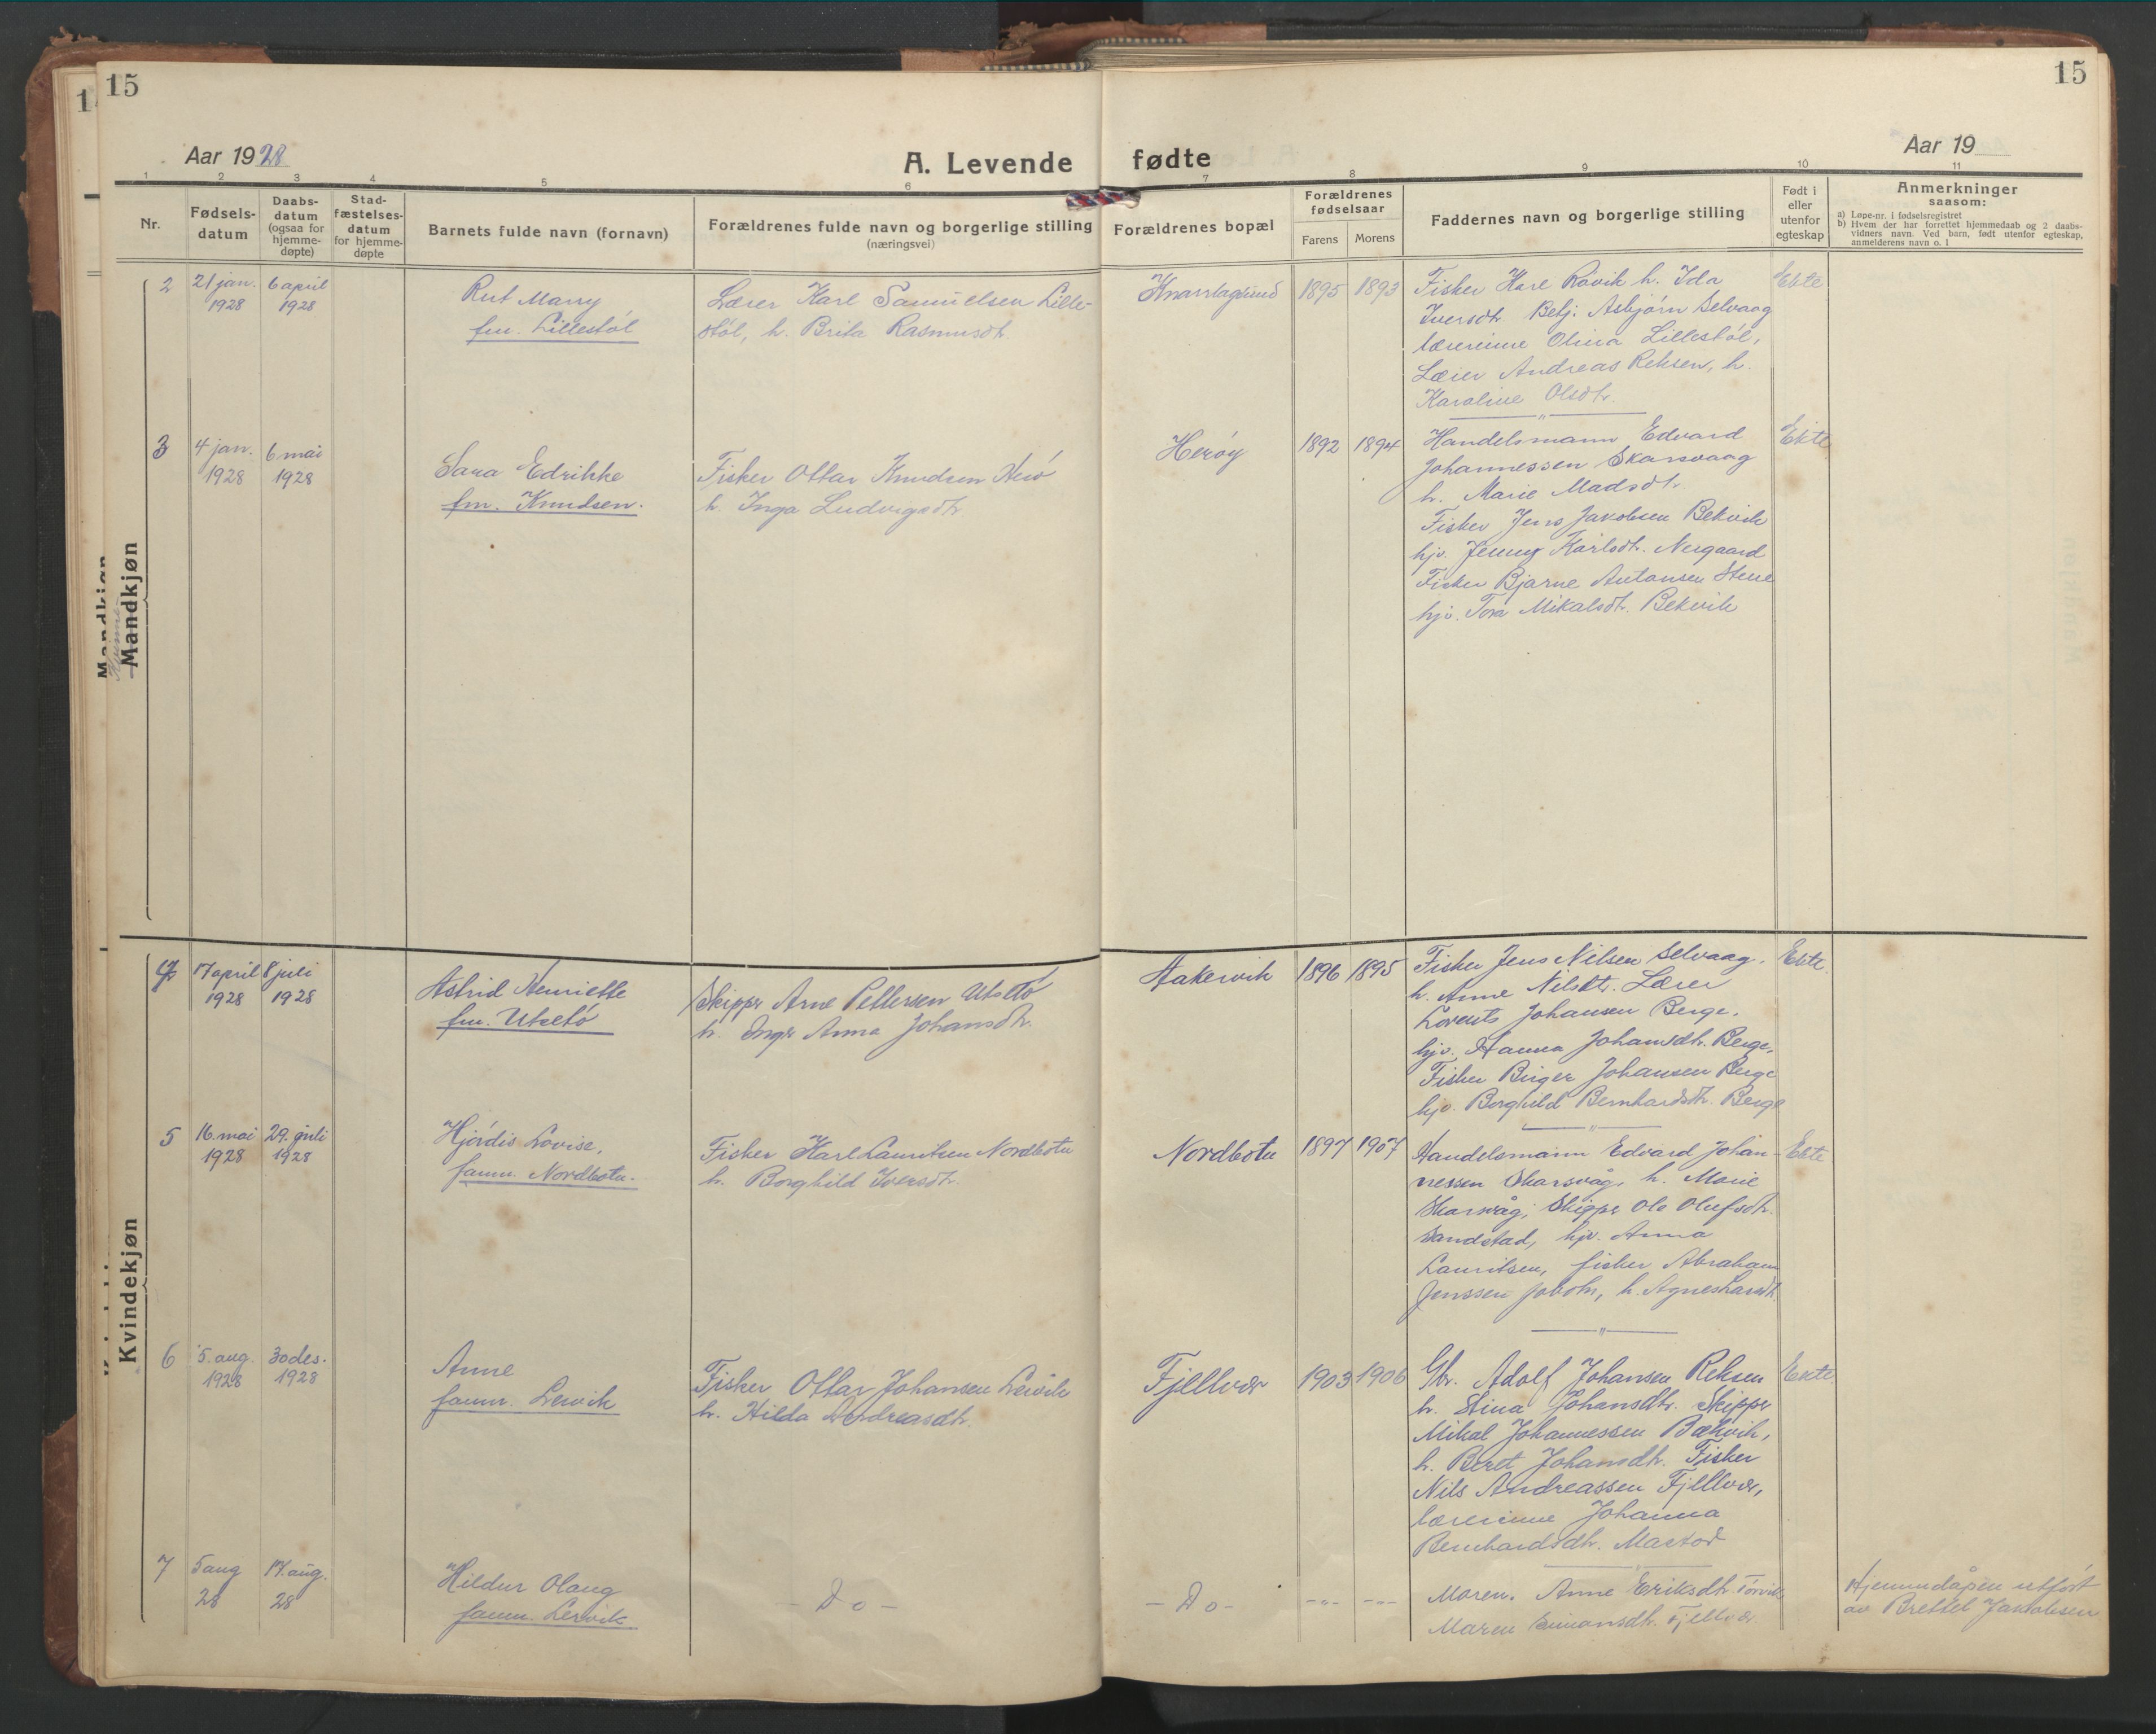 15
15
Aar 1928
A. Levende fødte
Aar 19
1 2 3 4 5 6 7 8 9 10 11
Nr.
Fødsels-
datum
Daabs-
datum
(ogsaa for
hjemme-
døpte)
Stad-
fæstelses-
datum
for hjemme-
døpte
Barnets fulde navn (fornavn)
Forældrenes fulde navn og borgerlige stilling
(næringsvei)
Forældrenes bopæl
Forældrenes
fødselsaar
Farens
Morens
Faddernes navn og borgerlige stilling
Født i
eller
utenfor
egteskap
Anmerkninger
saasom:
a) Løpe-nr. i fødselsregistret
b) Hvem der har forrettet hjemmedaab og 2 daabs-
vidners navn. Ved barn, født utenfor egteskap,
anmelderens navn o. l
Mandkjøn
2
21 jan.
1928
6 april
1928
Rut Marry
fm. Lillestöl
Lærer Karl Samuelsen Lille-
stöl, h. Brita Rasmusdt.
Knarrlagsund
1895
1893
Fisker Kare Råvik h. Ida
Iversdt. Betj. Asbjørn Selvaag
lærerinne Olina Lillestöl,
Lærer Andreas Reksen, h.
Karoline Olsdt.
Ekte
3
4 jan.
1928
6 mai
1928
Sara Edrikke
fm. Knudsen.
Fisker Ottar Knudsen
h. Inga Ludvigsdt.
Heröy
1892
1894
Handelsmann Edvard
Johannessen Skarsvaag
h. Marie Madsdt.
Fisker Jens Jakobsen Bekvik
hjv. Jenny Karlsdt. Nergaard
Fisker Bjarne Antonsen Stene
hjv. Tora Mikalsdt. Bekvik
Ekte
Kvindekjøn
17 april
1928
8 juli
1928
Astrid Henriette
fm. Utsetö
Skipper Arne Pettersen Utsetö
h. Inger Anna Johansdt.
Aakervik
1896
1895
Fisker Jens Nilsen Selvaag.
h. Anne Nilsdt. Lærer
Lorents Johansen Berge.
hjv. Hanna Johansdt. Berge,
Fisker Birger Johansen Berge
hjv. Borghild Bernhardsdt. Berge
Ekte.
5
16. mai
1928
29. juli
1928
Hjördis Lovise,
famn. Nordbotn.
Fisker Karl Lauritsen Nordbotn
h. Borghild Iversdt.
Nordbotn
1897
1907
Handelsmann Edvard Johan-
nessen Skarsvåg, h. Marie
Skarsvåg; Skipper Ole Olufsdt.
Sandstad, hjv. Anna
Lauritsen, fisker Abraham
Jenssen
Ekte
6
5. aug.
1928
30 des.
1928
Anne
famn. Lervik
Fisker Ottar Johansen Lervik
h. Hilda Andreasdt.
Fjellvær
1903
1906
Gbr. Adolf Johansen Reksen
h. Stina Johansdt. Skipper
Mikal Johannessen Bækvik,
h. Beret Johansdt. Fisker
Nils Andreassen Fjellvær,
lærerinne Johanna
Bernhardsdt.
Ekte.
7
5 aug
28
17. aug.
28
Hildur Olaug
famn. Lervik
- Do -
- Do -
-"-
-"-
Maren. Anne Eriksdt.
Maren Simonsdt. Fjellvær
Hjemmdåpen utfört
av Brettet Jakobsen